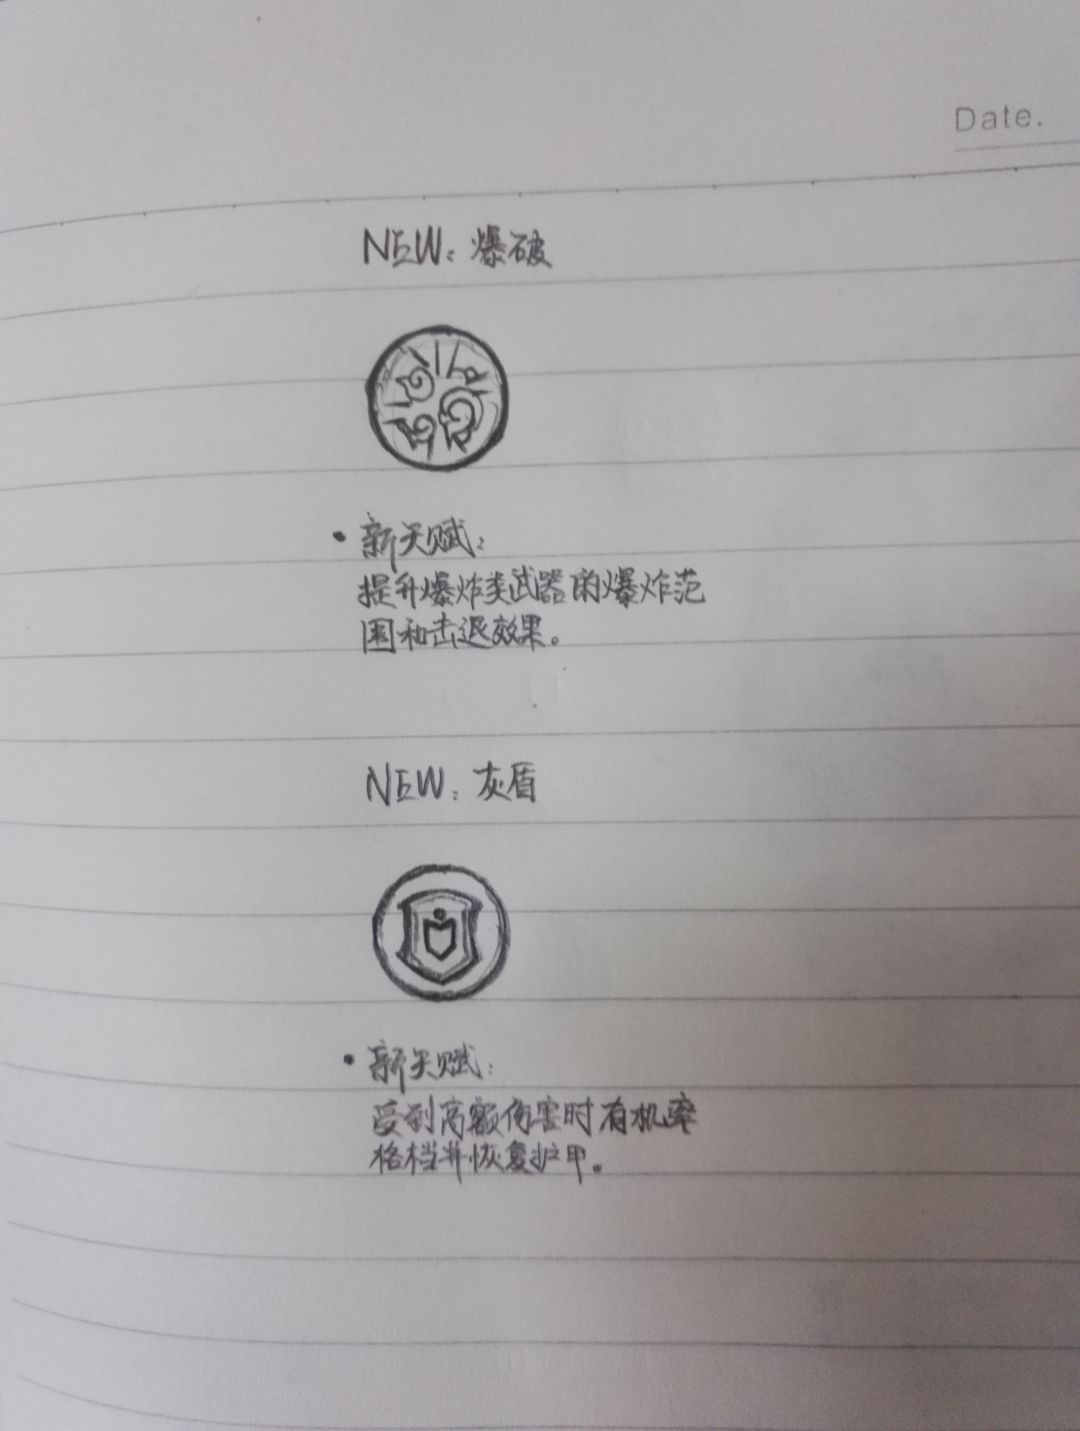 Date.
NEW: 爆破
• 新天赋:
提升爆炸类武器的爆炸范
围和击退效果。
NEW: 灰盾
• 新天赋:
受到高额伤害时有机率
格档并恢复护甲。